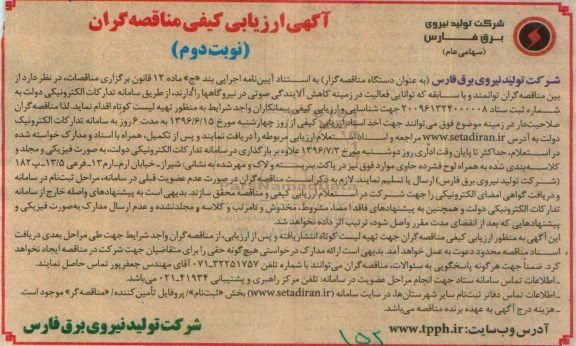 شرکت تولید نیروی
برق فارس
(سهامی عام)
آگهی ارزیابی کیفی مناقصه گران
(نوبت دوم)
شرکت تولید نیروی برق فارس (به عنوان دستگاه مناقصه گزار) به استناد آیین‌نامه اجرایی بند «ج» ماده ۱۲ قانون برگزاری مناقصات، در نظر دارد از
بین مناقصه گران توانمند و با سابقه که توانایی فعالیت در زمینه کاهش آلایندگی صوتی در نیروگاهها را دارند، از طریق سامانه تدارکات الکترونیکی دولت به
شماره ثبت ستاد ۲۰۰۹۶۱۳۲۴۰۰۰۰۰۸ جهت شناسایی و ارزیابی کیفی پیمانکاران واجد شرایط به منظور تهیه لیست کوتاه اقدام نماید. لذا مناقصه گران
صلاحیت‌دار در زمینه موضوع فوق می توانند جهت اخذ اسناد ارزیابی کیفی از روز چهارشنبه مورخ ۱۳۹۶/۶/۱۵ به مدت ۶ روز به سامانه تدارکات الکترونیک
دولت به آدرس www.setadiran.ir مراجعه و اسناد استعلام ارزیابی مربوطه را دریافت نمایند و پس از تکمیل، همراه با اسناد و مدارک خواسته شده
در استعلام، حداکثر تا پایان وقت اداری روز دوشنبه مورخ ۱۳۹۶/۷/۳ علاوه بر بارگذاری در سامانه تدارکات الکترونیکی دولت، به صورت فیزیکی و مجلد و
کلاسه‌بندی شده به همراه لوح فشرده حاوی موارد فوق نیز در پاکت دربسته و لاک و مهر شده به نشانی: شیراز-خیابان ارم-ارم۱۳-فرعی ۱۳/۵-پ ۱۸۲
(شرکت تولید نیروی برق فارس) ارسال یا تسلیم نمایند. لازم به ذکر است مناقصه گران در صورت عدم عضویت قبلی در سامانه، مراحل ثبت‌نام در سامانه
و دریافت گواهی امضای الکترونیکی را جهت شرکت در استعلام ارزیابی کیفی و مناقصه محقق سازند. بدیهی است به پیشنهادهای واصله خارج از سامانه
تدارکات الکترونیکی دولت و همچنین به پیشنهادهای فاقد امضا، مشروط، مخدوش و نامرتب و کلاسه و مجلدنشده و عدم ارسال مدارک به‌صورت فیزیکی و
پیشنهادهایی که بعد از انقضای مدت مقرر واصل شود، ترتیب اثر داده نخواهد شد.
این آگهی به منظور ارزیابی کیفی مناقصه گران جهت تهیه لیست کوتاه انتشار یافته و پس از ارزیابی، از مناقصه گران واجد شرایط جهت طی مراحل بعدی دریافت
اسناد مناقصه محدود دعوت به عمل خواهد آمد. بدیهی است ارائه مدارک درخواستی هیچ‌گونه حقی را برای متقاضیان جهت شرکت در مناقصه ایجاد نخواهد
کرد. ضمناً جهت هر گونه پاسخگویی به سئوالات، مناقصه گران می توانند با شماره تلفن ۳۲۲۵۱۷۵۷-۰۷۱ آقای مهندس جعفرپور تماس حاصل نمایند.
-اطلاعات تماس سامانه ستاد جهت انجام مراحل عضویت در سامانه: تلفن مرکز راهبری و پشتیبانی ۴۱۹۳۴-۰۲۱ می‌باشد.
-اطلاعات تماس دفاتر ثبت‌نام سایر شهرستان‌ها، در سایت سامانه (www.setadiran.ir) بخش «ثبت‌نام»/ پروفایل تأمین‌کننده/ «مناقصه‌گر» موجود است.
-هزینه درج آگهی به عهده برنده مناقصه می‌باشد.
آدرس وب سایت: www.tpph.ir
شرکت تولید نیروی برق فارس
۱۵۲